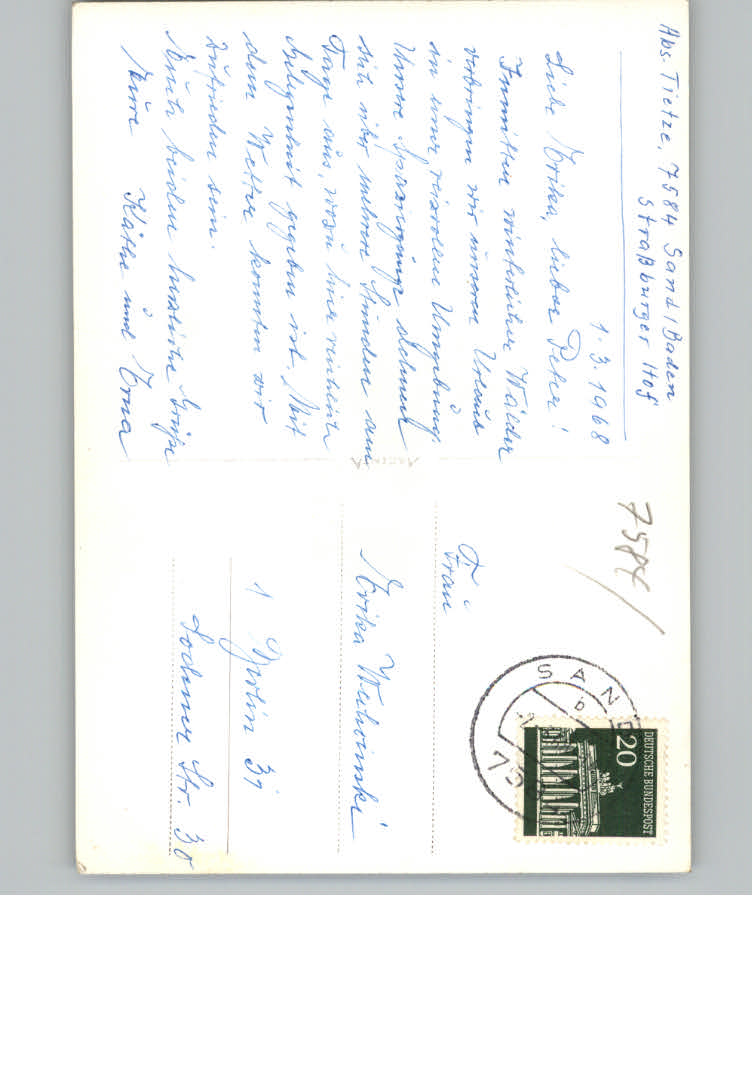 Abs. Tietze, 7584 Sand/Baden
Straßburger Hof
1.3.1968
Liebe Erika, lieber Peter!
Inmitten winterlicher Wälder
verbringen wir unseren Urlaub
in einer reizvollen Umgebung.
Unsere Spaziergänge dehnen
sich über mehrere Stunden am
Tage aus, wozu hier reichlich
Gelegenheit gegeben ist. Mit
dem Wetter konnten wir
zufrieden sein.
Euch beiden herzliche Grüße
Eure Käthe und Erna
7584
SAND
DEUTSCHE BUNDESPOST
20
Frau
Erika
1 Berlin 31
Str. 30